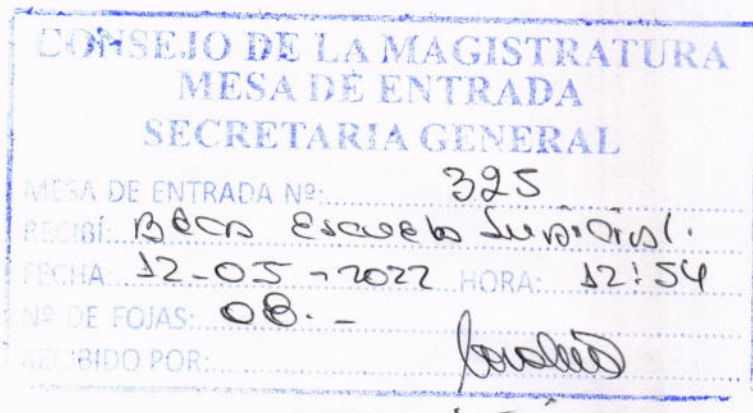 CONSEJO DE LA MAGISTRATURA
MESA DE ENTRADA
SECRETARIA GENERAL
MESA DE ENTRADA Nº: 325
RECIBÍ: Beca Escuela Judicial.
FECHA: 12-05-2022 HORA: 12:54
Nº DE FOJAS: 08.-
RECIBIDO POR: